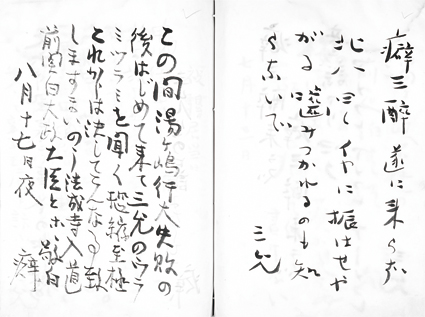 癖三醉遂に来らず
北八 イヤに振はせや
がる 噬みつかれるのも知
らないで
三允
この間湯ヶ嶋行大失敗の
後はじめて来て三允のツラ
ミツラミを聞く恐縮至極
これからは決してこんな事致
しますまいのう法成寺入道
前関白太政大臣とホゝ敬白
八月十七日夜
癖